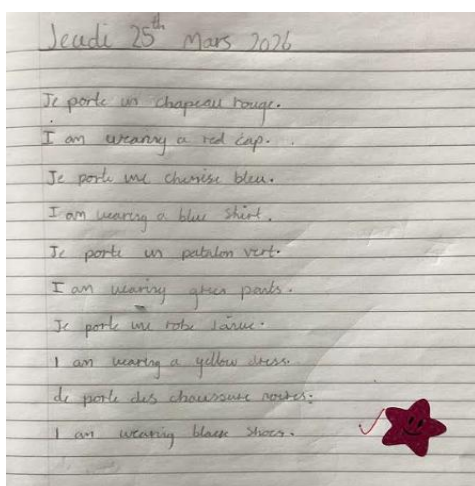 Jeudi 25th Mars 2026
Je porte un chapeau rouge.
I am wearing a red cap.
Je porte une chemise bleu.
I am wearing a blue shirt.
Je porte un patalon vert.
I am wearing green pants.
Je porte une robe
I am wearing a yellow dress.
de porte des chaussure noires.
I am wearing black shoes.